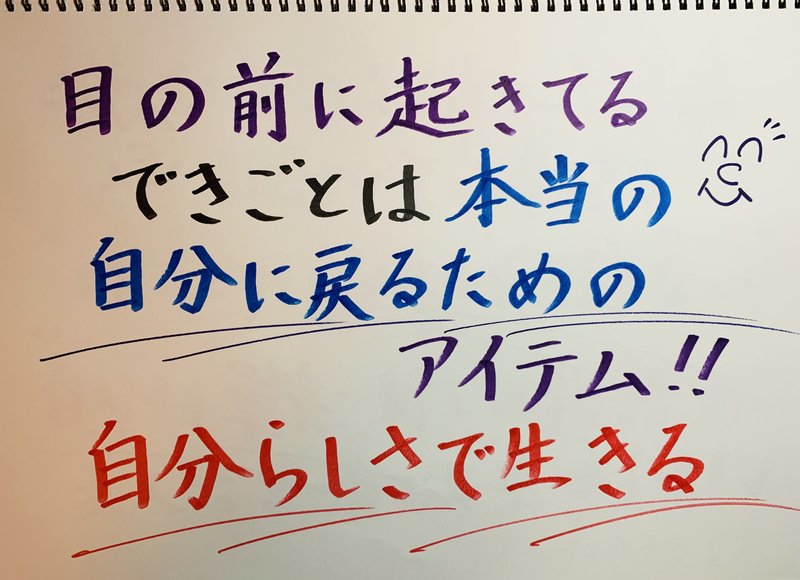 目の前に起きてる
できごとは本当の
自分に戻るための
アイテム!!
自分らしさで生きる